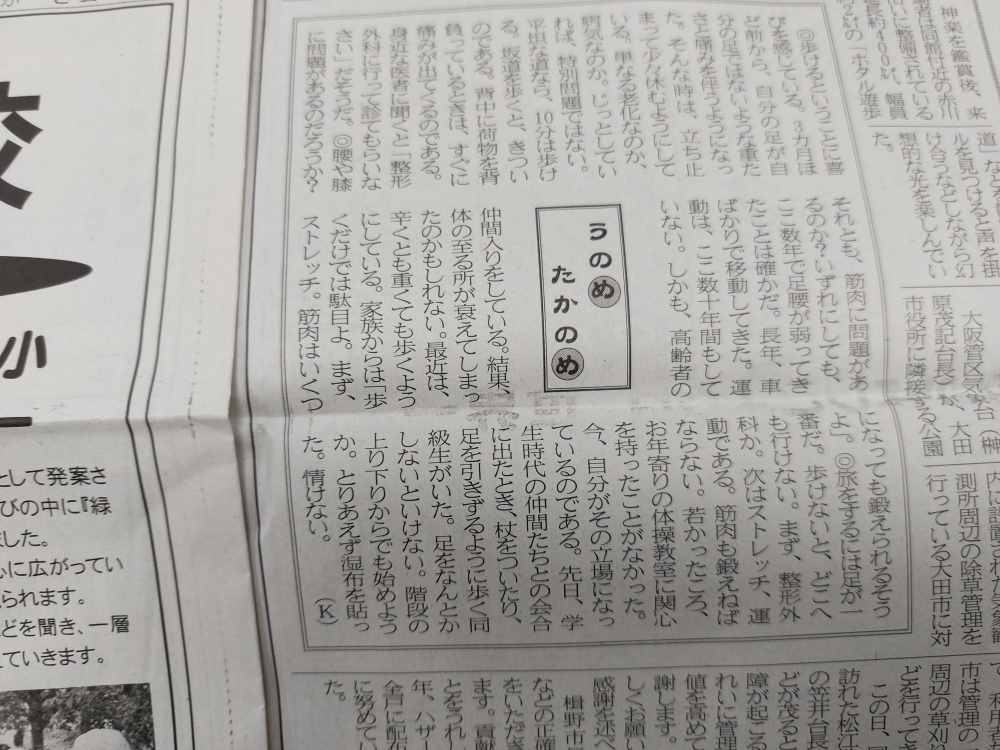 うのめ
たかのめ
◎歩けるということに喜
びを感じている。3カ月ほ
ど前から、自分の足が自
分の足ではないような重た
さと痛みを伴うようになっ
た。そんな時は、立ち止
まって少々休むようにして
いる。単なる老化なのか、
病気なのか。じっとしてい
れば、特別問題ではない。
平坦な道なら、10分は歩け
る。坂道を歩くと、きつい
のである。背中に荷物を背
負っているときは、すぐに
痛みが出てくるのである。
身近な医者に聞くと「整形
外科に行って診てもらいな
さい」だそうだ。◎腰や膝
に問題があるのだろうか?
それとも、筋肉に問題があ
るのか?いずれにしても、
ここ数年で足腰が弱ってき
たことは確かだ。長年、車
ばかりで移動してきた。運
動は、ここ数十年間もして
いない。しかも、高齢者の
仲間入りをしている。結果、
体の至る所が衰えてしまっ
たのかもしれない。最近は、
辛くとも重くても歩くよう
にしている。家族からは「歩
くだけでは駄目よ。まず、
ストレッチ。筋肉はいくつ
になっても鍛えられるそう
よ」。◎旅をするには足が一
番だ。歩けないと、どこへ
も行けない。まず、整形外
科か。次はストレッチ、運
動である。筋肉も鍛えねば
ならない。若かったころ、
お年寄りの体操教室に関心
を持ったことがなかった。
今、自分がその立場になっ
ているのである。先日、学
生時代の仲間たちとの会合
に出たとき、杖をついたり、
足を引きずるように歩く同
級生がいた。足をなんとか
しないといけない。階段の
上り下りからでも始めよう
か。とりあえず湿布を貼っ
た。情けない。
(K)
神楽を鑑賞後、来
た。
道」などを
ルを見つけると声を掛
け合うなどしながら幻
想的な光を楽しんでい
た。
大阪管区気象台(榊
原茂記台長)が、大田
市役所に隣接する公園
測所周辺の除草管理を
行っている大田市に対
小
として発案さ
びの中に『緑
ました。
心に広がってい
られます。
どを聞き、一層
ていきます。
この日、
訪れた松江
の笠井台長
どが茂ると
障が起こる
れいに管理
値を高めて
しくお願い
謝します。
感謝を述べ
楫野市
などの正確
をいただき
ます。貢献
とをうれし
年、ハザー
全戸に配布
に努めてい
た。